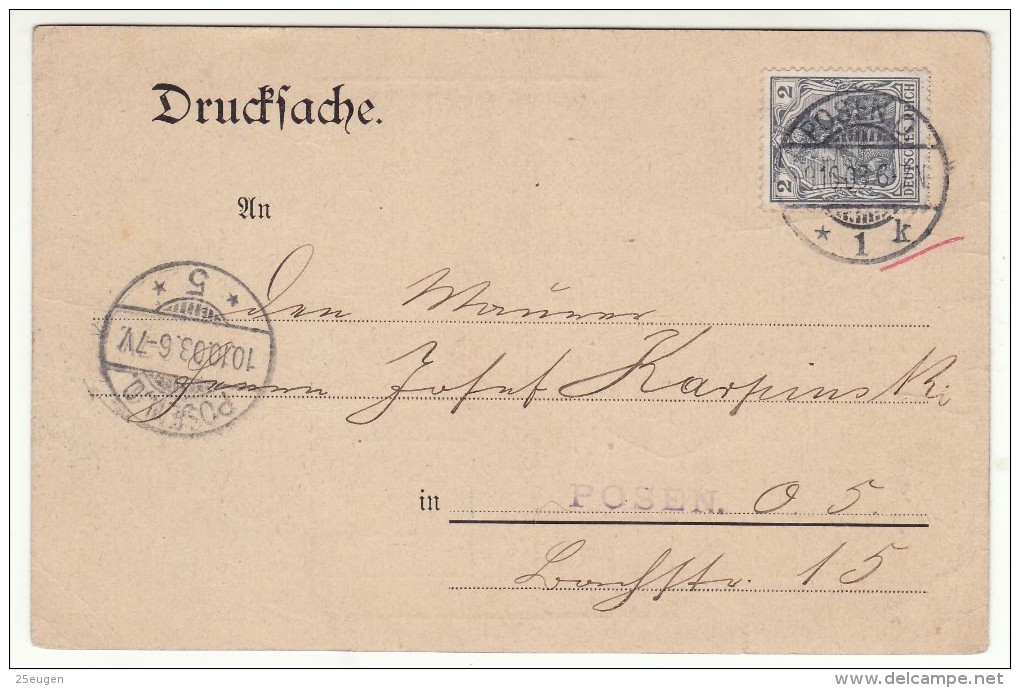 Drucksache.
2 2
DEUTSCHES REICH
POSEN
10.03.6-
* 1 k
An
* 5 *
10.10.03.6-7V.
POSEN O.
den Maurer
Herrn Josef Karpinski
in POSEN. O 5.
Bachstr. 15
25eugen
www.delcampe.net